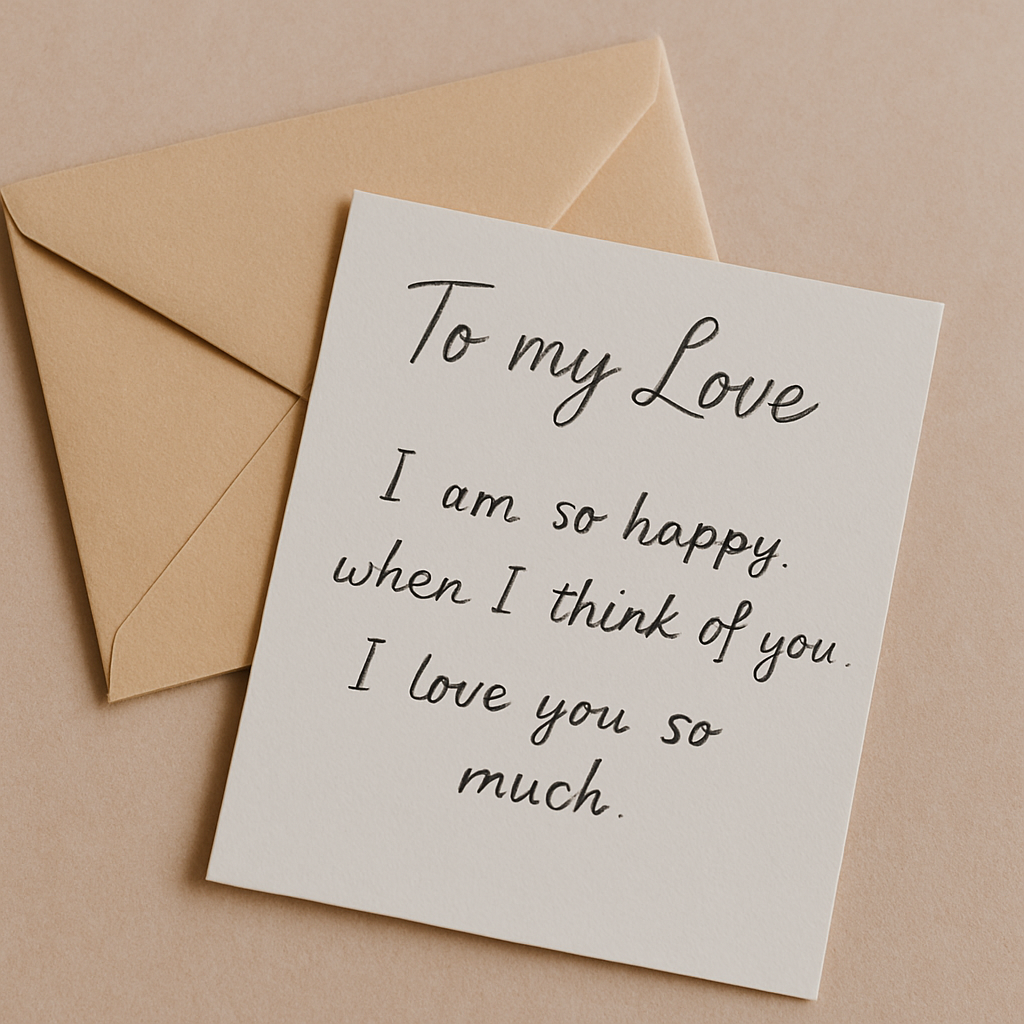 To my Love
I am so happy.
when I think of you.
I love you so
much.